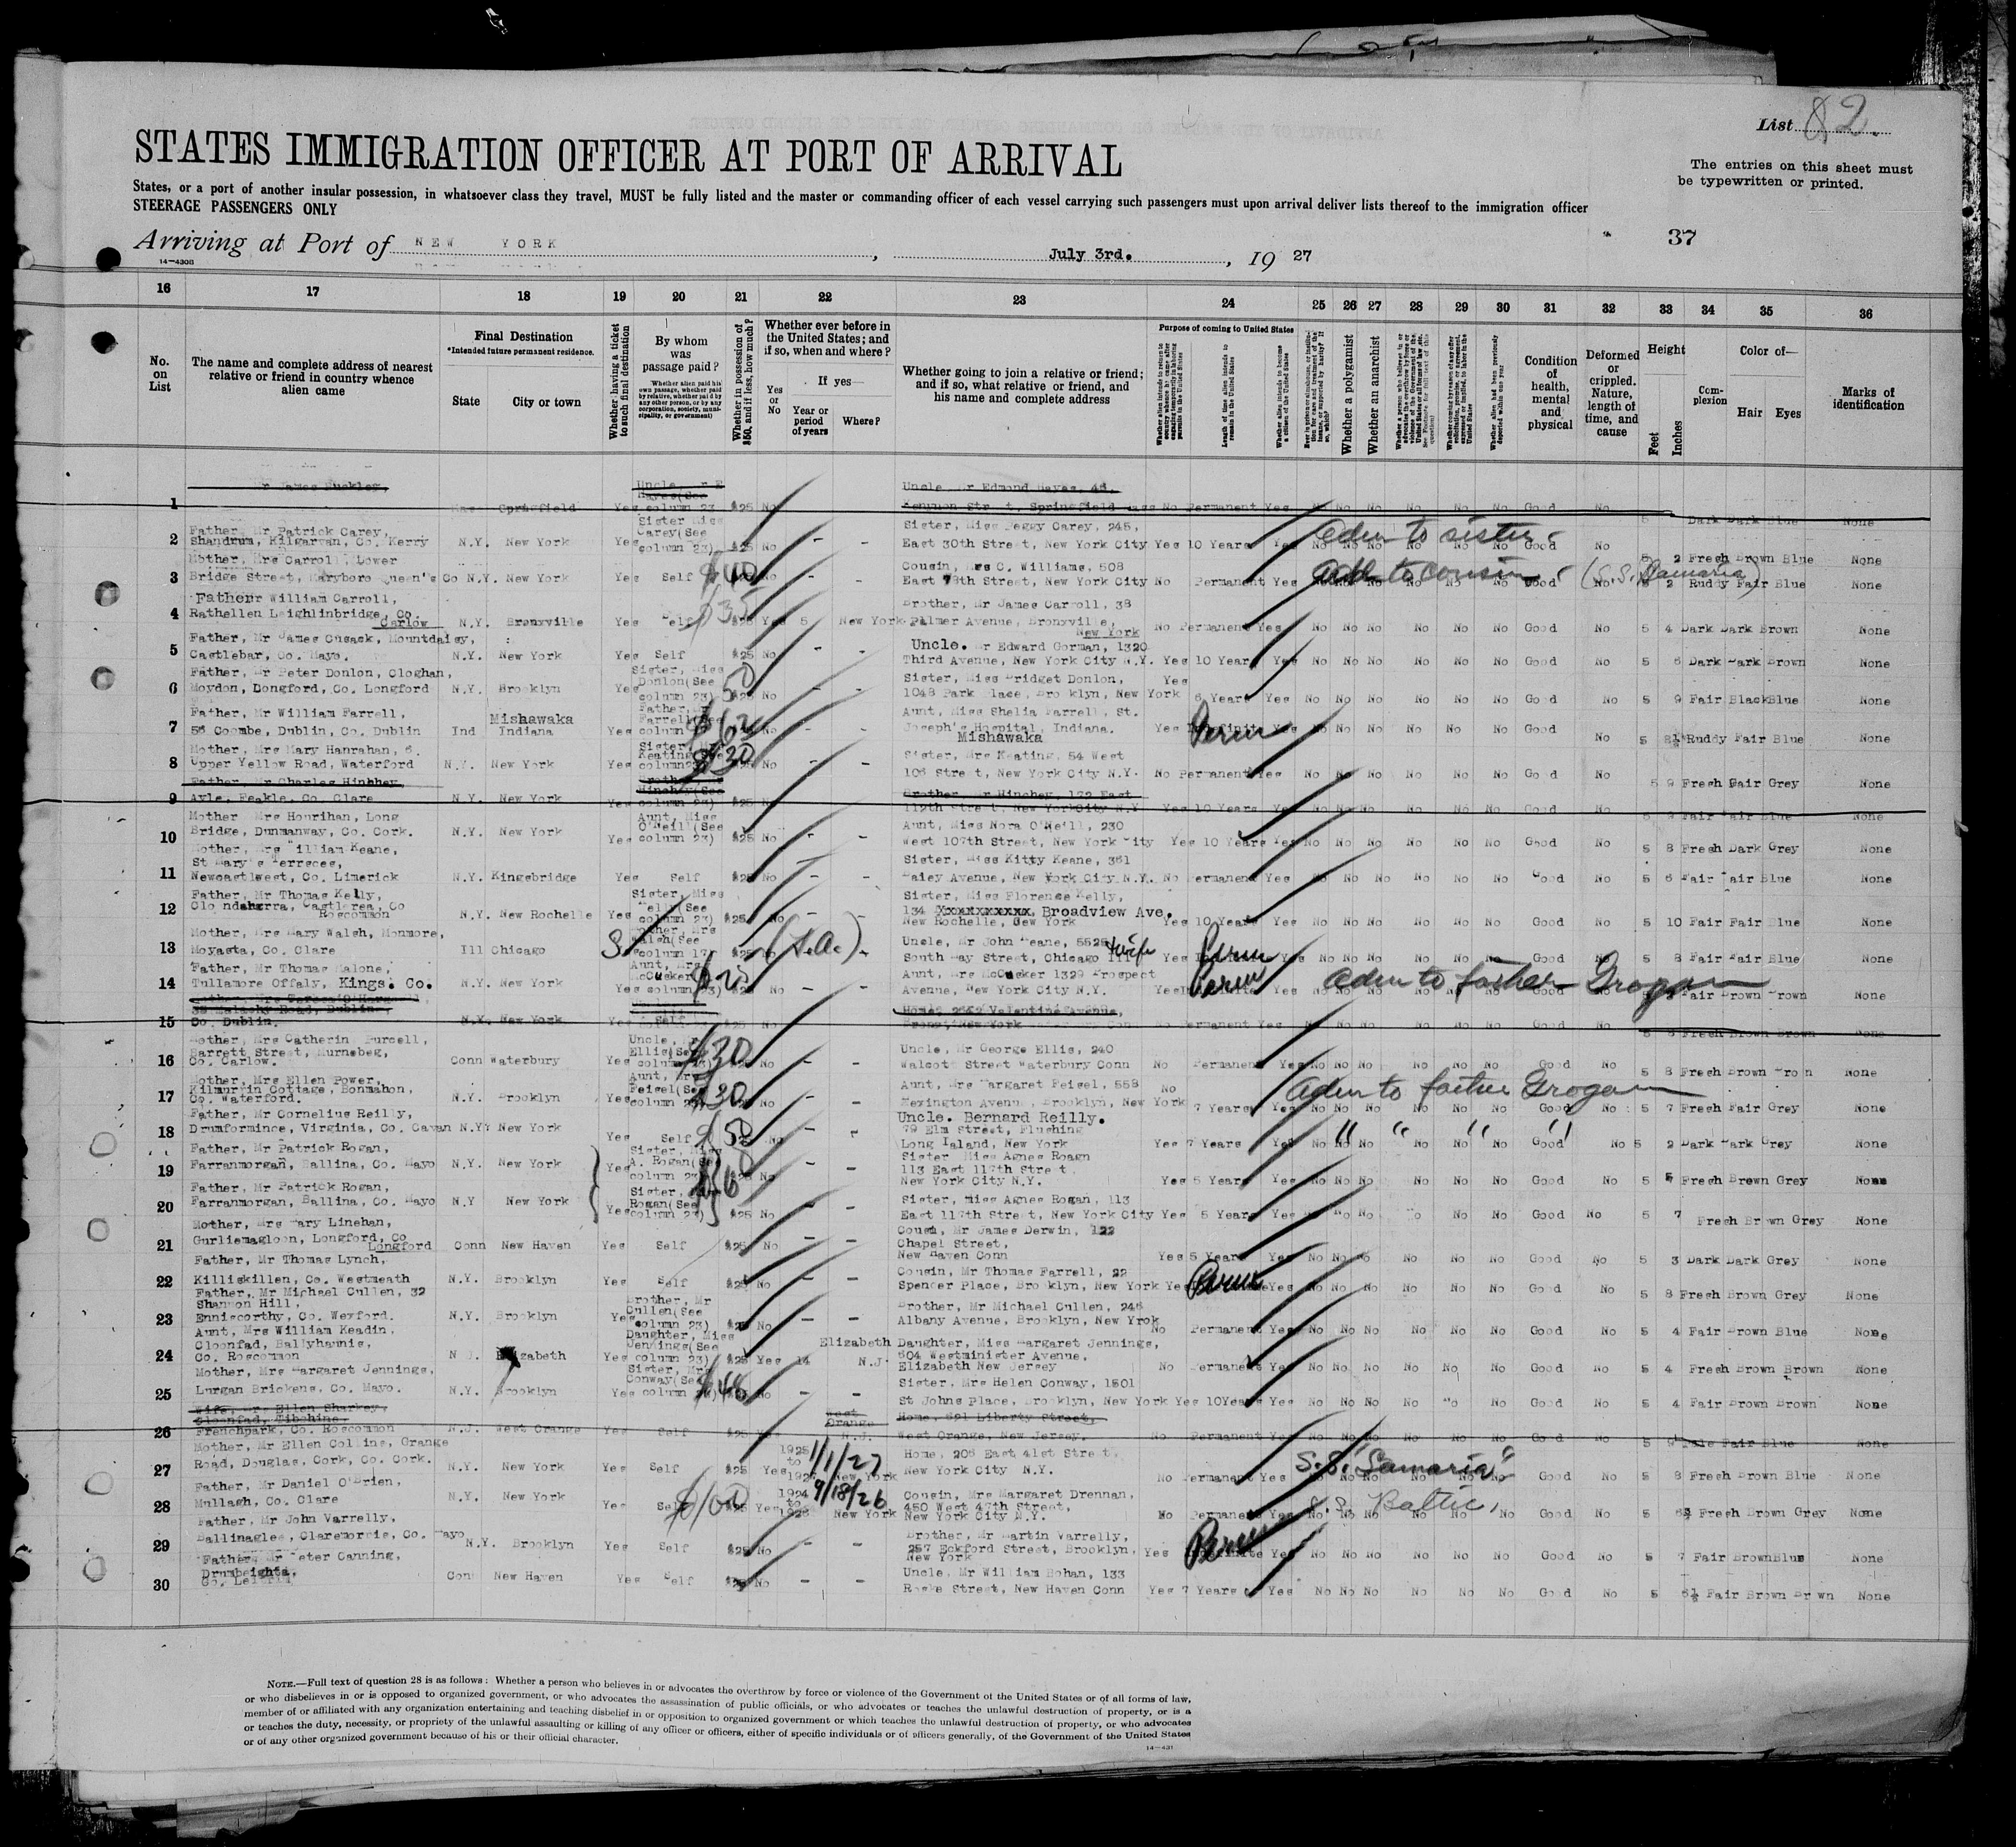 List 82.
STATES IMMIGRATION OFFICER AT PORT OF ARRIVAL
The entries on this sheet must
be typewritten or printed.
States, or a port of another insular possession, in whatsoever class they travel, MUST be fully listed and the master or commanding officer of each vessel carrying such passengers must upon arrival deliver lists thereof to the immigration officer
STEERAGE PASSENGERS ONLY
Arriving at Port of NEW YORK, July 3rd., 19 27
37
14-4308
16 17 18 19 20 21 22 23 24 25 26 27 28 29 30 31 32 33 34 35 36
No. on List
The name and complete address of nearest relative or friend in country whence alien came
Final Destination
*Intended future permanent residence.
State City or town
Whether having a ticket to such final destination
By whom was passage paid?
Whether alien paid his own passage, whether paid by relative, whether paid by any other person, or by any corporation, society, municipality, or government
Whether in possession of $50, and if less, how much?
Whether ever before in the United States; and if so, when and where?
Yes or No
If yes—
Year or period of years
Where?
Whether going to join a relative or friend; and if so, what relative or friend, and his name and complete address
Purpose of coming to United States
Length of time alien intends to remain in the United States
Whether alien intends to become a citizen of the United States
Whether a polygamist
Whether an anarchist
Condition of health, mental and physical
Deformed or crippled. Nature, length of time, and cause
Height
Feet Inches
Complexion
Color of—
Hair Eyes
Marks of identification
1 Mr James Buckley, Springfield Yes Uncle, Hayes(See column 23 $25 No Uncle, Mr Edmond Hayes, 45, Kenyon Street, Springfield Mass No Permanent Yes No No No No No Good No 5 Dark Dark Blue None
2 Father, Mr Patrick Carey, Shandrum, Kilgarvan, Co. Kerry N.Y. New York Yes Sister Miss Carey(See column 23) $25 No Sister, Miss Peggy Carey, 245, East 30th Street, New York City Yes 10 Years Yes No No No No No No Good No 5 2 Fresh Brown Blue None
Adm to sister
3 Mother, Mrs Carroll, Lower Bridge Street, Maryboro Queen's Co N.Y. New York Yes Self $40 No - - Cousin, Mrs C. Williams, 508 East 78th Street, New York City No Permanent Yes No No No No No No Good 5 2 Ruddy Fair Blue None
Adm to cousin (S.S. Samaria)
4 Father William Carroll, Rathellen Leighlinbridge, Co. Carlow N.Y. Bronxville Yes Self $35 Yes 5 New York Brother, Mr James Carroll, 38 Palmer Avenue, Bronxville, New York No Permanent Yes No No No No No No Good No 5 4 Dark Dark Brown None
5 Father, Mr James Cusack, Mountdaisy, Castlebar, Co. Mayo. N.Y. New York Yes Self $25 No - - Uncle. Mr Edward Gorman, 1320 Third Avenue, New York City N.Y. Yes 10 Years Yes No No No No No No Good No 5 6 Dark Dark Brown None
6 Father, Mr Peter Donlon, Cloghan, Moydon, Longford, Co. Longford N.Y. Brooklyn Yes Sister, Miss Donlon(See column 23) 50 $25 No - - Sister, Miss Bridget Donlon, 1048 Park Place, Brooklyn, New York Yes 6 Years Yes No No No No No No Good No 5 9 Fair Black Blue None
7 Father, Mr William Farrell, 56 Coombe, Dublin, Co. Dublin Ind Mishawaka Indiana Yes Father, Farrell(See column $62 No - - Aunt, Miss Shelia Farrell, St. Joseph's Hospital, Indiana. Mishawaka Yes Perm Yes No No No No No No Good No 5 8½ Ruddy Fair Blue None
8 Mother, Mrs Mary Hanrahan, 6. Upper Yellow Road, Waterford N.Y. New York Yes Sister, Mrs Keating(See column 23) $30 No - Sister, Mrs Keating, 54 West 106 Street, New York City N.Y. No Permanent Yes No No No No No No Good No 5 9 Fresh Fair Grey None
9 Father, Mr Charles Hinchey Ayle, Feakle, Co. Clare N.Y. New York Yes Brother Hinchey(See column 23) $25 No Brother, Mr Hinchey, 172 East 112th Street, New York City N.Y. Yes 10 Years Yes No No No No No Good No 5 9 Fair Fair Blue None
10 Mother Mrs Hourihan, Long Bridge, Dunmanway, Co. Cork. N.Y. New York Yes Aunt, Miss O'Neill(See column 23) $25 No - - Aunt, Miss Nora O'Neill, 230 West 107th Street, New York City Yes 10 Years Yes No No No No No No Good No 5 8 Fresh Dark Grey None
11 Mother, Mrs William Keane, St Mary's Terreces, Newcastlwest, Co. Limerick N.Y. Kingsbridge Yes Self $25 No - - Sister, Miss Kitty Keane, 361 Bailey Avenue, New York City N.Y. No Permanent Yes No No No No No No Good No 5 6 Fair Fair Blue None
12 Father, Mr Thomas Kelly, Castlerea, Co Roscommon N.Y. New Rochelle Yes Sister, Miss Kelly(See column 23) $25 No - - Sister, Miss Florence Kelly, 134 Xxxxxxxxxxx, Broadview Ave. New Rochelle, New York Yes 10 Years Yes No No No No No No Good No 5 10 Fair Fair Blue None
13 Mother, Mrs Mary Walsh, Monmore, Moyasta, Co. Clare Ill Chicago Mother, Mrs Walsh(See column 17) $25 No Uncle, Mr John Keane, 5525 South May Street, Chicago Ill & wife Yes Perm Yes No No No No No No Good No 5 8 Fair Fair Blue None
14 Father, Mr Thomas Malone, Tullamore Offaly, Kings. Co. N.Y. New York Yes Aunt, Mrs McCusker column 23) $20 No - - Aunt, Mrs McCusker 1329 Prospect Avenue, New York City N.Y. Yes Perm Good Fair Brown Brown None
Adm to father Grogan
15 Malachy Road, Dublin, Co. Dublin. N.Y. New York Yes Self $25 Home, Valentine Avenue, Bronx, New York Permanent Yes No No No No No No Good No 5 6 Fresh Brown Brown None
16 Mother, Mrs Catherin Purcell, Barrett Street, Co. Carlow. Conn Waterbury Yes Uncle, Mr Ellis(See column 23) $30 No - - Uncle, Mr George Ellis, 240 Walcott Street Waterbury Conn No Permanent Yes No No No No No No Good No 5 8 Fresh Brown Brown None
17 Mother, Mrs Ellen Power, Kilmurrin Cottage, Bonmahon, Co. Waterford. N.Y. Brooklyn Yes Aunt, Mrs Feigel(See column 23) $30 No - - Aunt, Mrs Margaret Feigel, 558 Lexington Avenue, Brooklyn, New York No 7 Years Yes No No No No No No Good No 5 7 Fresh Fair Grey None
Adm to father Grogan
18 Father, Mr Cornelius Reilly, Drumformince, Virginia, Co. Cavan N.Y. New York Yes Self $50 No - Uncle. Bernard Reilly. 79 Elm Street, Flushing Long Island, New York Yes 7 Years Yes No No No No No No Good No 5 2 Dark Dark Grey None
" " " "
19 Father, Mr Patrick Rogan, Farranmorgan, Ballina, Co. Mayo N.Y. New York Yes Sister, Miss A. Rogan(See column 23) $56 No - - Sister Miss Agnes Roagn 113 East 117th Street. New York City N.Y. Yes 5 Years Yes No No No No No No Good No 5 Fresh Brown Grey None
20 Father, Mr Patrick Rogan, Farranmorgan, Ballina, Co. Mayo N.Y New York Yes Sister, Rogan(See column 23) $25 No - - Sister, Miss Agnes Rogan, 113 East 117th Street, New York City Yes 5 Years Yes No No No No No Good No 5 7 Fresh Brown Grey None
21 Mother, Mrs Mary Linehan, Gurliemagloon, Longford, Co Longford Conn New Haven Yes Self $25 No - - Cousin, Mr James Derwin, 122 Chapel Street, New Haven Conn Yes 5 Years Yes No No No No No No Good No 5 3 Dark Dark Grey None
22 Father, Mr Thomas Lynch, Killiskillen, Co. Westmeath N.Y. Brooklyn Yes Self $25 No - - Cousin, Mr Thomas Farrell, 22 Spencer Place, Brooklyn, New York Yes Perm Yes No No No No No No Good No 5 8 Fresh Brown Grey None
23 Father, Mr Michael Cullen, 32 Shannon Hill, Enniscorthy, Co. Wexford. N.Y. Brooklyn Yes Brother, Mr Cullen(See column 23) $25 No - - Brother, Mr Michael Cullen, 246 Albany Avenue, Brooklyn, New Yrok No Permanent Yes No No No No No No Good No 5 4 Fair Brown Blue None
24 Aunt, Mrs William Keadin, Cloonfad, Ballyhaunis, Co. Roscommon N.J. Elizabeth Yes Daughter, Miss Jennings(See column 23) $25 Yes 14 Elizabeth N.J. Daughter, Miss Margaret Jennings, 604 Westminister Avenue, Elizabeth New Jersey No Permanent Yes No No No No No No Good No 5 4 Fresh Brown Brown None
25 Mother, Mrs Margaret Jennings, Lurgan Brickens, Co. Mayo. N.Y. Brooklyn Yes Sister, Mrs Conway(See column 23) $48 No - - Sister, Mrs Helen Conway, 1501 St Johns Place, Brooklyn, New York Yes 10Years Yes No No No No No No Good No 5 4 Fair Brown Brown None
26 Wife, Mrs Ellen Sharkey, Cloonfad, Tibohine, Frenchpark, Co. Roscommon N.J. West Orange Yes Self $25 Yes West Orange N.J. Home, 521 Liberty Street, West Orange, New Jersey. No Permanent Yes No No No No No No Good No 5 9 Fair Blue None
27 Mother, Mr Ellen Collins, Grange Road, Douglas, Cork, Co. Cork. N.Y. New York Yes Self $25 Yes 1925 to 1927 1/1/27 New York Home, 206 East 41st Street. New York City N.Y. No Permanent Yes No No No No Good No 5 8 Fresh Brown Blue None
S.S. "Samaria"
28 Father, Mr Daniel O'Brien, Mullagh, Co. Clare N.Y. New York Yes Self $100 Yes 1924 to 1926 9/18/26 New York Cousin, Mrs Margaret Drennan, 450 West 47th Street, New York City N.Y. No Permanent Yes No No No No No Good No 5 6½ Fresh Brown Grey None
S.S. Baltic,
29 Father, Mr John Varrelly, Ballinaglea, Claremorris, Co. Mayo N.Y. Brooklyn Yes Self $25 No - - Brother, Mr Martin Varrelly, 257 Eckford Street, Brooklyn, New York Yes Perm Yes No No No No No No Good No 5 7 Fair Brown Blue None
30 Father Mr Peter Canning, Drumbeighta, Co. Leitrim Con New Haven Yes Self $25 No - - Uncle, Mr William Bohan, 133 Roske Street, New Haven Conn Yes 7 Years Yes No No No No No No Good No 5 6½ Fair Brown Brown None
NOTE.—Full text of question 28 is as follows: Whether a person who believes in or advocates the overthrow by force or violence of the Government of the United States or of all forms of law,
or who disbelieves in or is opposed to organized government, or who advocates the assassination of public officials, or who advocates or teaches the unlawful destruction of property, or is a
member of or affiliated with any organization entertaining and teaching disbelief in or opposition to organized government or which teaches the unlawful destruction of property, or who advocates
or teaches the duty, necessity, or propriety of the unlawful assaulting or killing of any officer or officers, either of specific individuals or of officers generally, of the Government of the United States
or of any other organized government because of his or their official character.
14-431